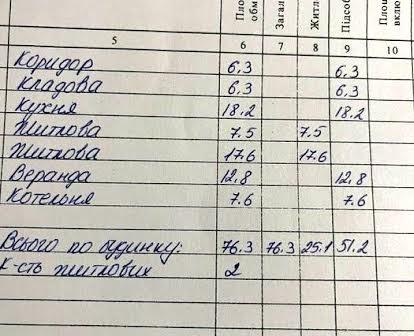 Пло
обм
Загал
Житл
Підсоб
Площ
вклю
5 6 7 8 9 10
Коридор 6.3 6.3
Кладова 6.3 6.3
Кухня 18.2 18.2
Житлова 7.5 7.5
Житлова 17.6 17.6
Веранда 12.8 12.8
Котельня 7.6 7.6
Всього по будинку: 76.3 76.3 25.1 51.2
К-сть житлових 2